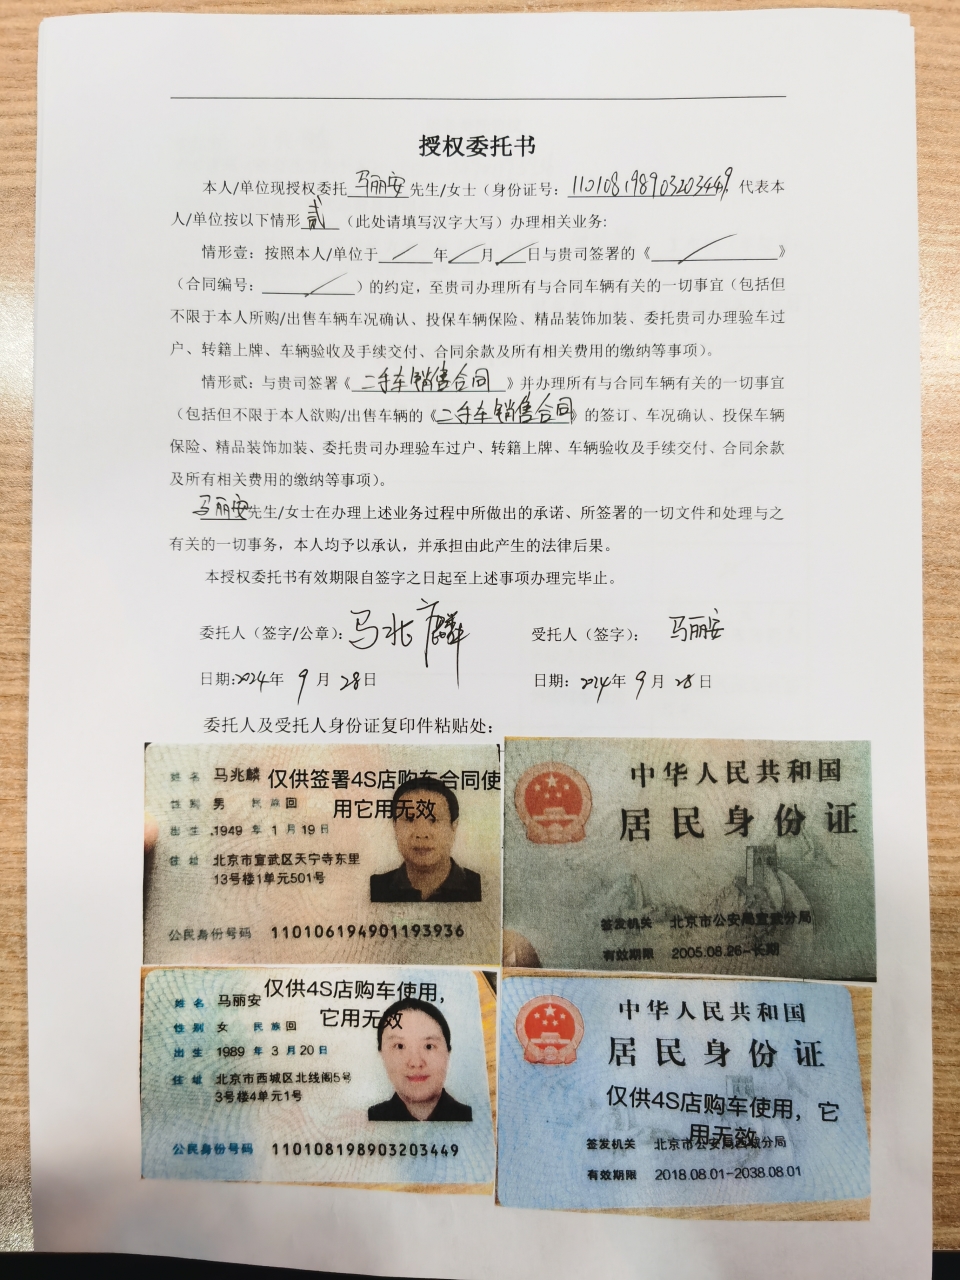 授权委托书
本人/单位现授权委托马丽安先生/女士（身份证号：110108198903203449 代表本
人/单位按以下情形贰（此处请填写汉字大写）办理相关业务：
情形壹：按照本人/单位于 年 月 日与贵司签署的《 》
（合同编号： ）的约定，至贵司办理所有与合同车辆有关的一切事宜（包括但
不限于本人所购/出售车辆车况确认、投保车辆保险、精品装饰加装、委托贵司办理验车过
户、转籍上牌、车辆验收及手续交付、合同余款及所有相关费用的缴纳等事项）。
情形贰：与贵司签署《二手车销售合同》并办理所有与合同车辆有关的一切事宜
（包括但不限于本人欲购/出售车辆的《二手车销售合同》的签订、车况确认、投保车辆
保险、精品装饰加装、委托贵司办理验车过户、转籍上牌、车辆验收及手续交付、合同余款
及所有相关费用的缴纳等事项）。
马丽安先生/女士在办理上述业务过程中所做出的承诺、所签署的一切文件和处理与之
有关的一切事务，本人均予以承认，并承担由此产生的法律后果。
本授权委托书有效期限自签字之日起至上述事项办理完毕止。
委托人（签字/公章）：马兆麟 受托人（签字）： 马丽安
日期:2024年 9 月 28日 日期：2024年 9 月 28日
委托人及受托人身份证复印件粘贴处：
姓名 马兆麟
性别 男 民族 回
出生 1949 年 1 月 19 日
住址 北京市宣武区天宁寺东里
13号楼1单元501号
公民身份号码 110106194901193936
仅供签署4S店购车合同使
用它用无效
中华人民共和国
居民身份证
签发机关 北京市公安局宣武分局
有效期限 2005.08.26-长期
姓名 马丽安
性别 女 民族 回
出生 1989 年 3 月 20 日
住址 北京市西城区北线阁5号
3号楼4单元1号
公民身份号码 110108198903203449
仅供4S店购车使用，
它用无效
中华人民共和国
居民身份证
仅供4S店购车使用，它
用无效
签发机关 北京市公安局西城分局
有效期限 2018.08.01-2038.08.01